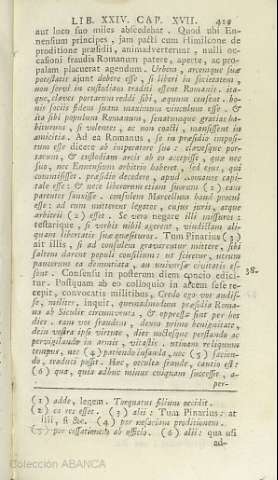 LIB. XXIV. CAP. XVII. 429
aut loco suo miles abscedebat. Quod ubi En-
nensium principes, jam pacti cum Himilcone de
proditione præsidii, animadverterunt, nulli oc-
casioni fraudis Romanum patere, aperte, ac pro-
palam placuerat agendum. Urbem, arcemque suæ
potestatis ajunt debere esse, si liberi in societatem,
non servi in custodiam traditi essent Romanis. ita-
que, claves portarum reddi sibi, æquum censent. bo-
nis sociis fidem suam maximum vinculum esse. &
ita sibi populum Romanum, senatumque gratias ha-
bituros, si volentes, ac non coacti, mansissent in
amicitia. Ad ea Romanus, se in præsidio imposi-
tum esse dicere ab imperatore suo: clavesque por-
tarum, & custodiam arcis ab eo accepisse, quæ nec
suo, nec Ennensium arbitrio haberet, sed ejus, qui
commisisset. præsidio decedere, apud Romanos capi-
tale esse: & nece liberorum etiam suorum (2) eam
parentes sanxisse. consulem Marcellum haud procul
esse: ad eum mitterent legatos, cujus juris, atque
arbitrii (2) esset. Se vero negare illi missuros:
testarique, si verbis nihil agerent, vindictam ali-
quam libertatis suæ quæsituros. Tum Pinarius (3)
ait illis, si ad consulem gravarentur mittere, sibi
saltem darent populi consilium: ut sciretur, utrum
paucorum ea denuntiatio, an universæ civitatis es-
sent. Consensu in posterum diem concio edici-
tur. Postquam ab eo colloquio in arcem sese re- 38.
cepit, convocatis militibus, Credo ego vos audis-
se, milites, inquit, quemadmodum præsidia Roma-
na ab Siculis circumventa, & oppressa sint per hos
dies. eam vos fraudem, deum primo benignitate,
dein vestra ipsi virtute, dies noctesque perstando ac
pervigilando in armis, vitastis. utinam reliquum
tempus, nec (4) patiendo infanda, nec (5) facien-
do, traduci posset. Hæc, occulta fraude, cautio est:
(6) qua, quia adhuc minus cuiquam successit, a-
per-
(1) adde, legem. Torquatus filium occidit.
(2) ea res esset. (3) alii: Tum Pinarius: at
illi, si &c. (4) per nefariam proditionem.
(5) per cessationem ab officio. (6) alii: qua usi
ad-
Colección ABANCA